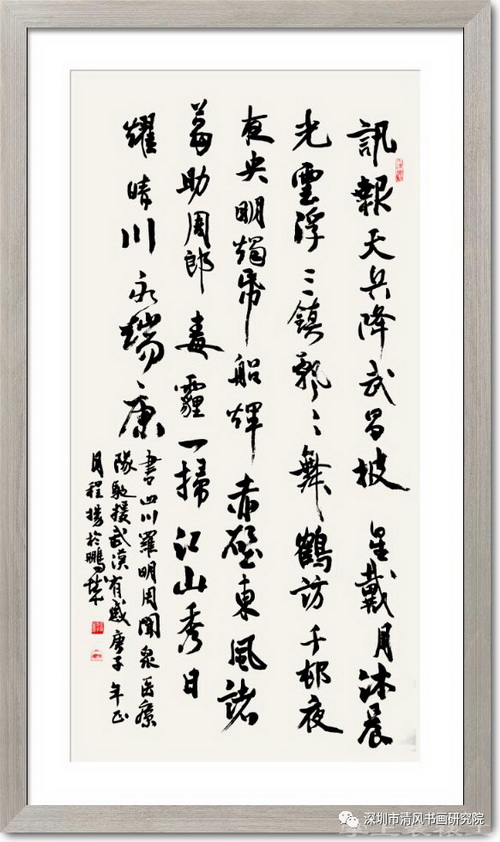 訊報天兵降武昌披星戴月沐晨
光雲浮三鎮飘々舞鶴訪千邨夜
夜央明燭帋船輝赤壁東風諸
葛助周郎毒霾一掃江山秀日
耀晴川永瑞康
書四川羅明周聞泉医療
隊馳援武漢有感庚子年正
月程於鵬城
深圳市清风书画研究院